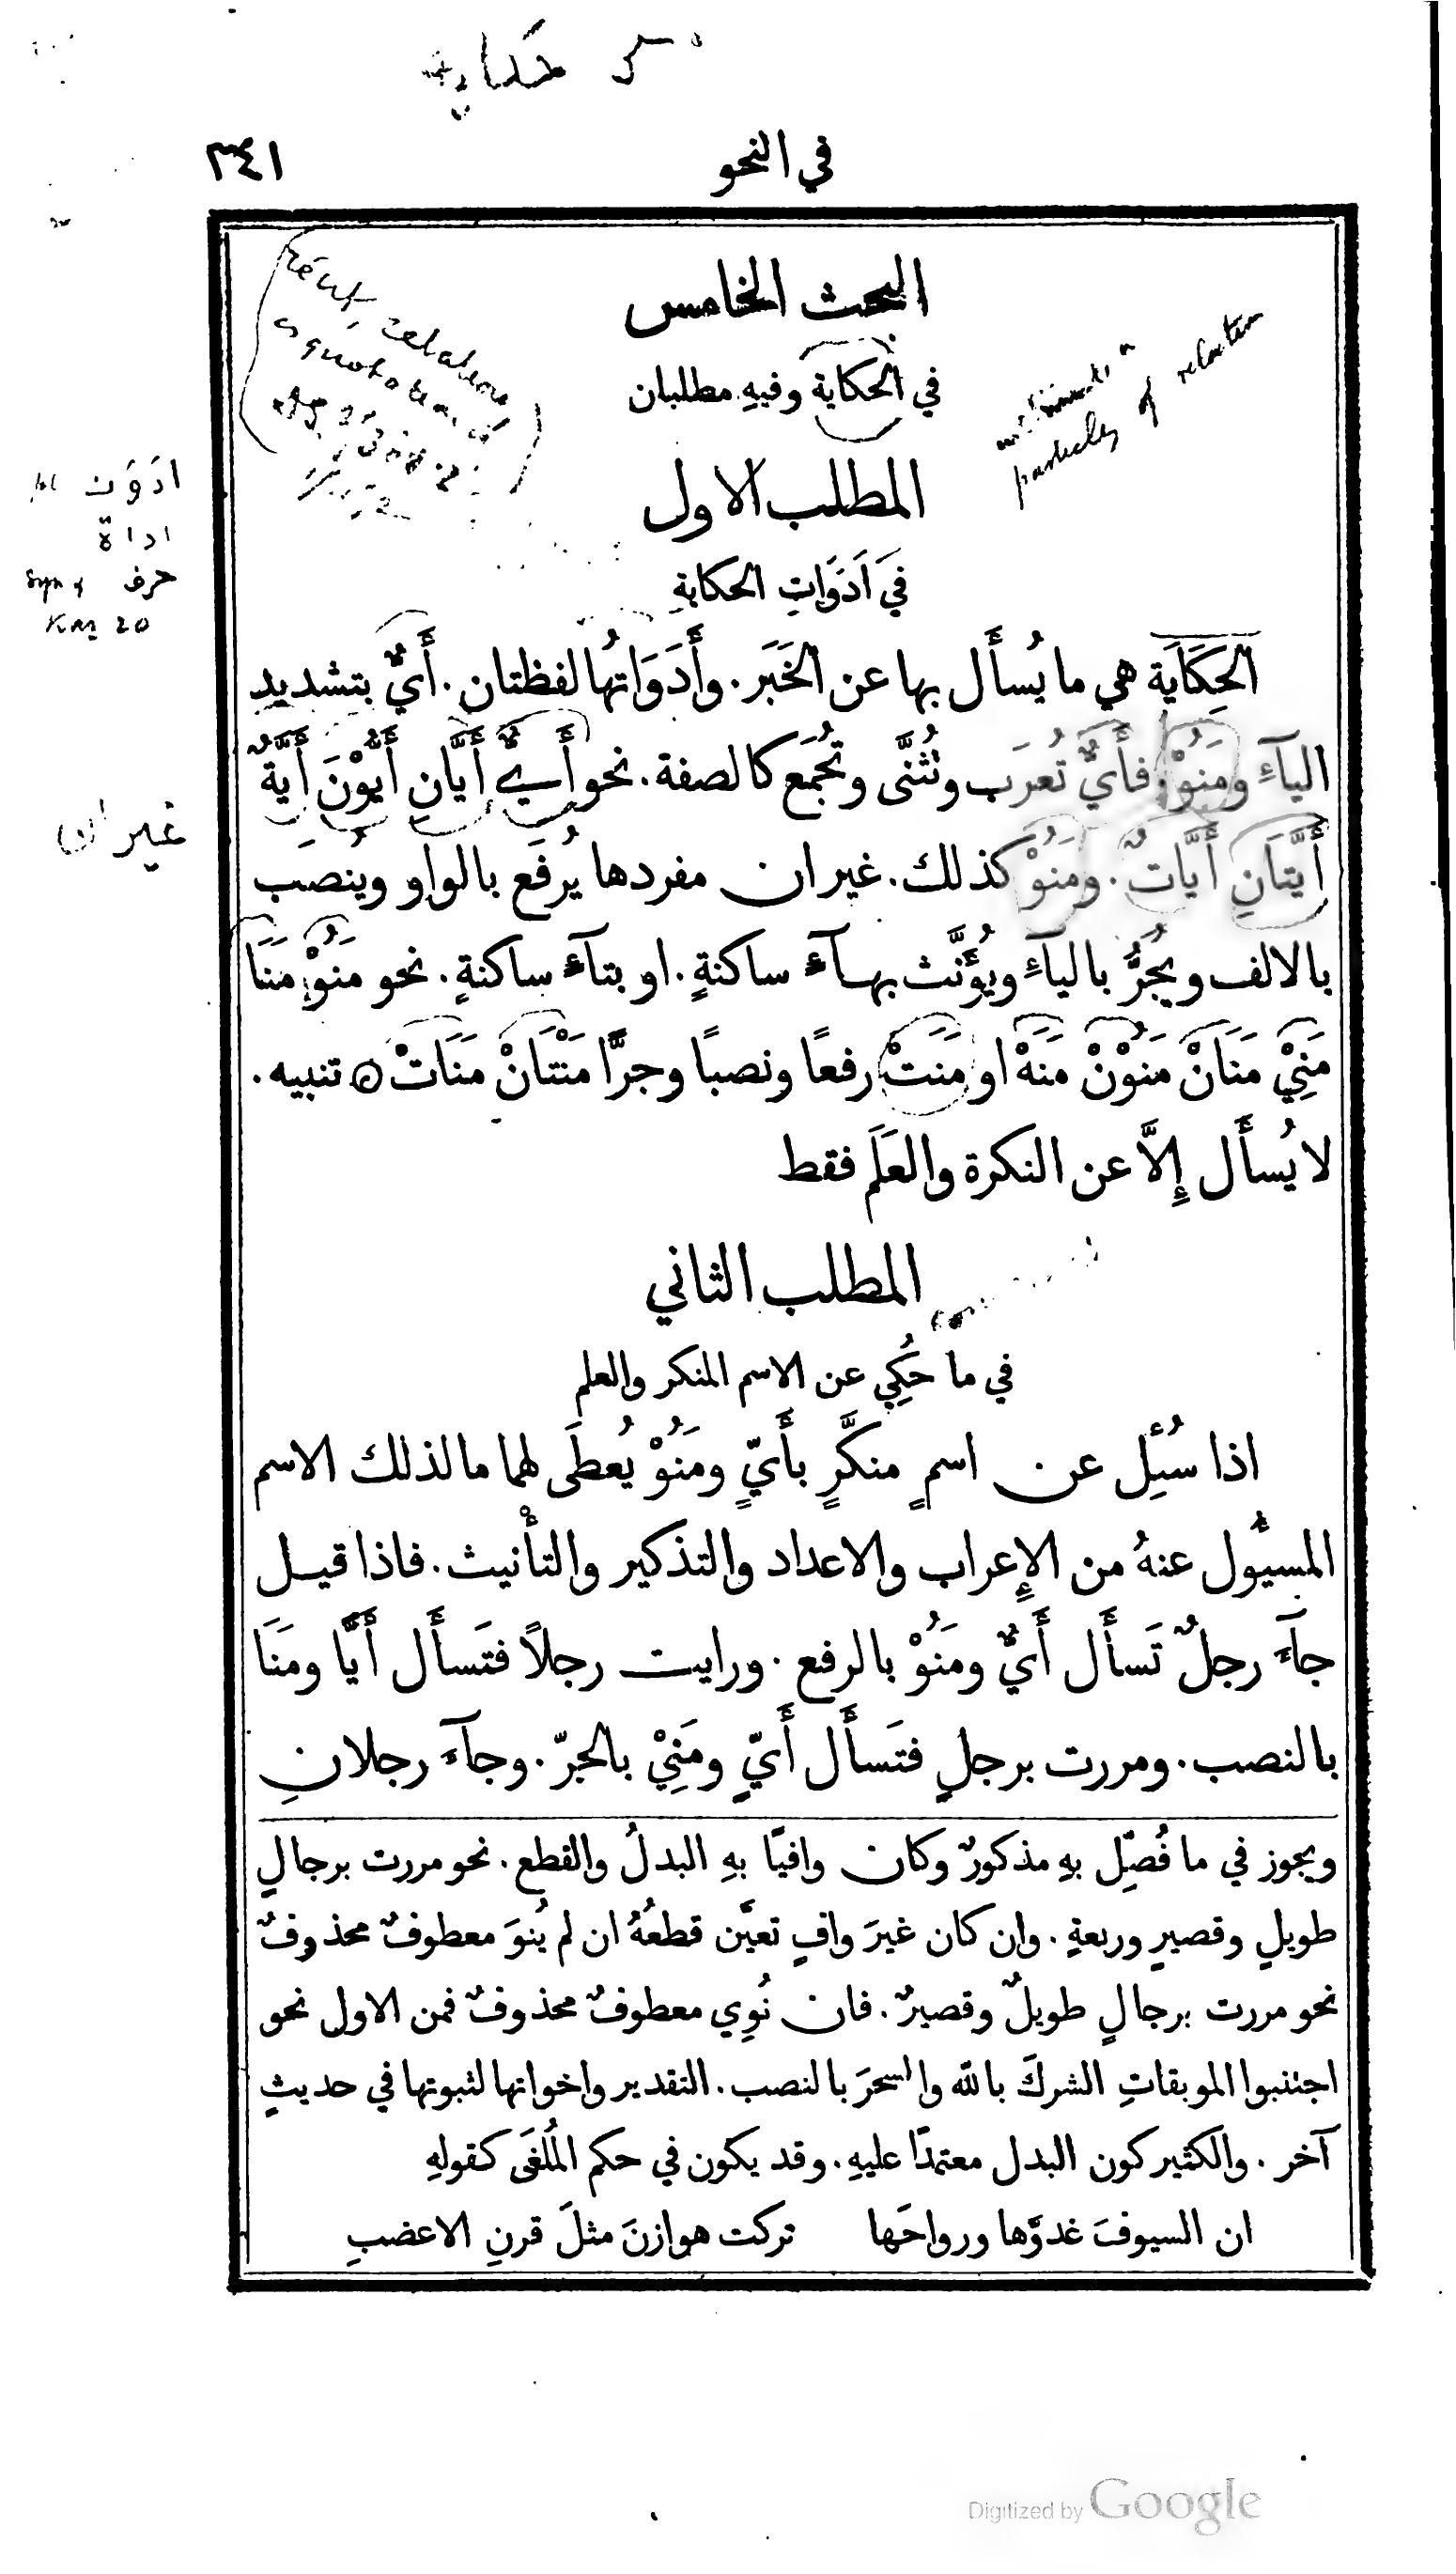 حكاية
في النحو
٣٤١
البحث الخامس
في الحكاية وفيهِ مطلبان
particles of relation
المطلب الاول
في اَدَوَاتِ الحكايةِ
ادَوَت
اداة
حرف
غيران
الحِكَايَة هي ما يُسأَل بها عن الخَبَر. وأَدَوَاتُها لفظتان. أَيٌّ بتشديدِ
اليآءِ ومَنُوْ. فأَيٌّ تُعرَب وتُثنَّى وتُجمَع كالصفة. نحو أَيٌّ أَيَّانِ أَيُّوْنَ أَيَّةٌ
أَيَّتَانِ أَيَّاتٌ. ومَنُوْ كذلك. غير ان مفردها يُرفَع بالواو ويُنصَب
بالالف ويُجرُّ باليآءِ ويُؤَنَّث بهآءٍ ساكنةٍ. او بتآءٍ ساكنةٍ. نحو مَنُوْ مَنَا
مَنِيْ مَنَانْ مَنُوْنْ مَنَهْ او مَنَتْ رفعًا ونصبًا وجرًّا مَنْتَانْ مَنَاتْ ۞ تنبيه.
لا يُسأَل إِلَّا عن النكرة والعَلَم فقط
المطلب الثاني
في ما حُكِي عن الاسم المنكر والعلم
اذا سُئِل عن اسمٍ منكَّرٍ بأَيٍّ ومَنُوْ يُعطَى لهما ما لذلك الاسم
المسئُول عنهُ من الإِعراب والاعداد والتذكير والتأْنيث. فاذا قيل
جآءَ رجلٌ تَسأَل أَيٌّ ومَنُوْ بالرفع. ورايت رجلاً فتَسأَل أَيًّا ومنَا
بالنصب. ومررت برجلٍ فتَسأَل أَيٍّ ومَنِيْ بالجرّ. وجآءَ رجلانِ
ويجوز في ما فُصِّل بهِ مذكورٌ وكان وافيًا بهِ البدلُ والقطع. نحو مررت برجالٍ
طويلٍ وقصيرٍ وربعةٍ. وان كان غيرَ وافٍ تعيَّن قطعُهُ ان لم يُنوَ معطوفٌ محذوفٌ
نحو مررت برجالٍ طويلٌ وقصيرٌ. فان نُوِي معطوفٌ محذوفٌ فمن الاول نحو
اجتنبوا الموبقاتِ الشركَ باللّه والسحرَ بالنصب. التقدير واخواتها لثبوتها في حديثٍ
آخر. والكثير كون البدل معتمدًا عليهِ. وقد يكون في حكم المُلغَى كقولهِ
ان السيوفَ غدوَّها ورواحَها تركت هوازنَ مثلَ قرنِ الاعضبِ
Digitized by Google